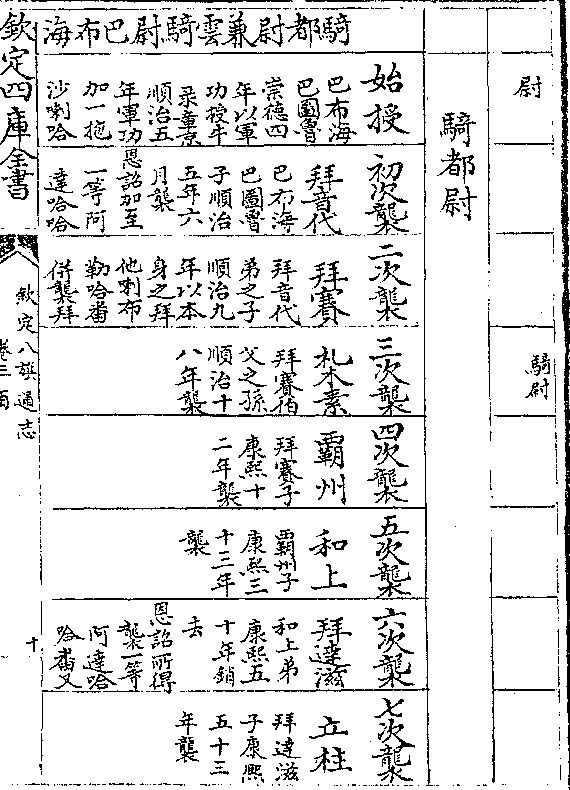 尉
騎尉
騎都尉
騎都尉兼雲騎尉巴布海
始授
巴布海
巴圖魯
崇德四
年以軍
功授牛
录章京
順治五
年軍功
加一拖
沙喇哈
初次襲
拜音代
巴布海
巴圖魯
子順治
五年六
月襲
恩詔加至
一等阿
達哈哈
二次襲
拜賽
拜音代
弟之子
順治九
年以本
身之拜
他喇布
勒哈番
併襲拜
三次襲
札木素
拜賽伯
父之孫
順治十
八年襲
四次襲
霸州
拜賽子
康熙十
二年襲
五次襲
和上
霸州子
康熙三
十三年
襲
六次襲
拜達滋
和上弟
康熙五
十年銷
去
恩詔所得
襲一等
阿達哈
哈番又
七次襲
立柱
拜達滋
子康熙
五十三
年襲
欽定四庫全書
欽定八旗通志
卷三百
十